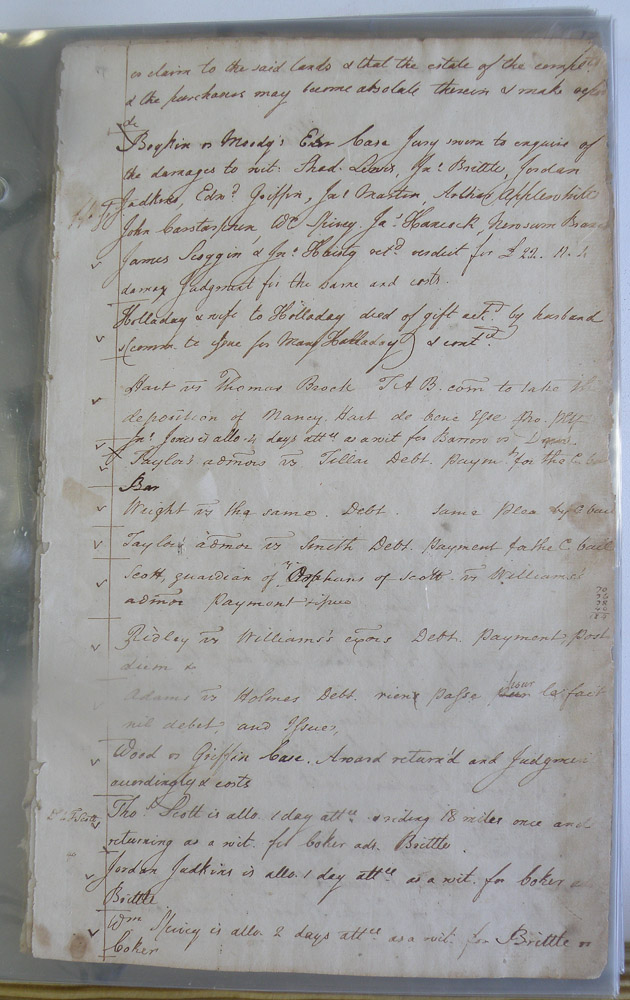 or claim to the said lands & that the estate of the compt.
& the purchases may become absolute therein & make
&c
Boykin vs Moody's Exor Case Jury sworn to enquire of
the damages to wit. Shad. Lewis, Jns. Brittle, Jordan
Judkins, Edmd. Griffin, Jas. Martin, Arthur Applewhite
John Carstarphen, Wm. Spivey, Jas. Hancock, Newsum Branch
James Scoggin & Jno. Haisty retd. verdict for £ 22. 11. 4
damag Judgment for the same and costs.
Holladay & wife to Holladay deed of gift ackd. by husband
(comm. to issue for Mary Holladay) & contd.
Hart vs Thomas Brock T A B. com to take the
deposition of Nancy Hart de bene Esse for Pltf
Jns. Jones is allo. 4 days attce as a wit for Barrow vs
Taylor's admors vs Tillar Debt. paymt. for the C. bail
Bar
Wright vs the same. Debt. same plea by C bail
Taylor's admor vs Smith Debt. payment for the C. bail
Scott, guardian of ye Orphans of Scott vs Williams's
admor Payment & issue
70
76
78
Ridley vs Williams's exors Debt Payment, post
diem &
Adams vs Holmes Debt. riens passe per le fait
nil debet, and Issues,
Wood vs Griffin Case. Award return'd and Judgment
accordingly & costs
Thos. Scott is allo. 1 day attce & riding 18 miles once and
returning as a wit. for Coker ads. Brittle.
Jordan Judkins is allo. 1 day attce as a wit. for Coker
Brittle
Wm Spivey is allo. 2 days attce as a wit. for Brittle vs
Coker